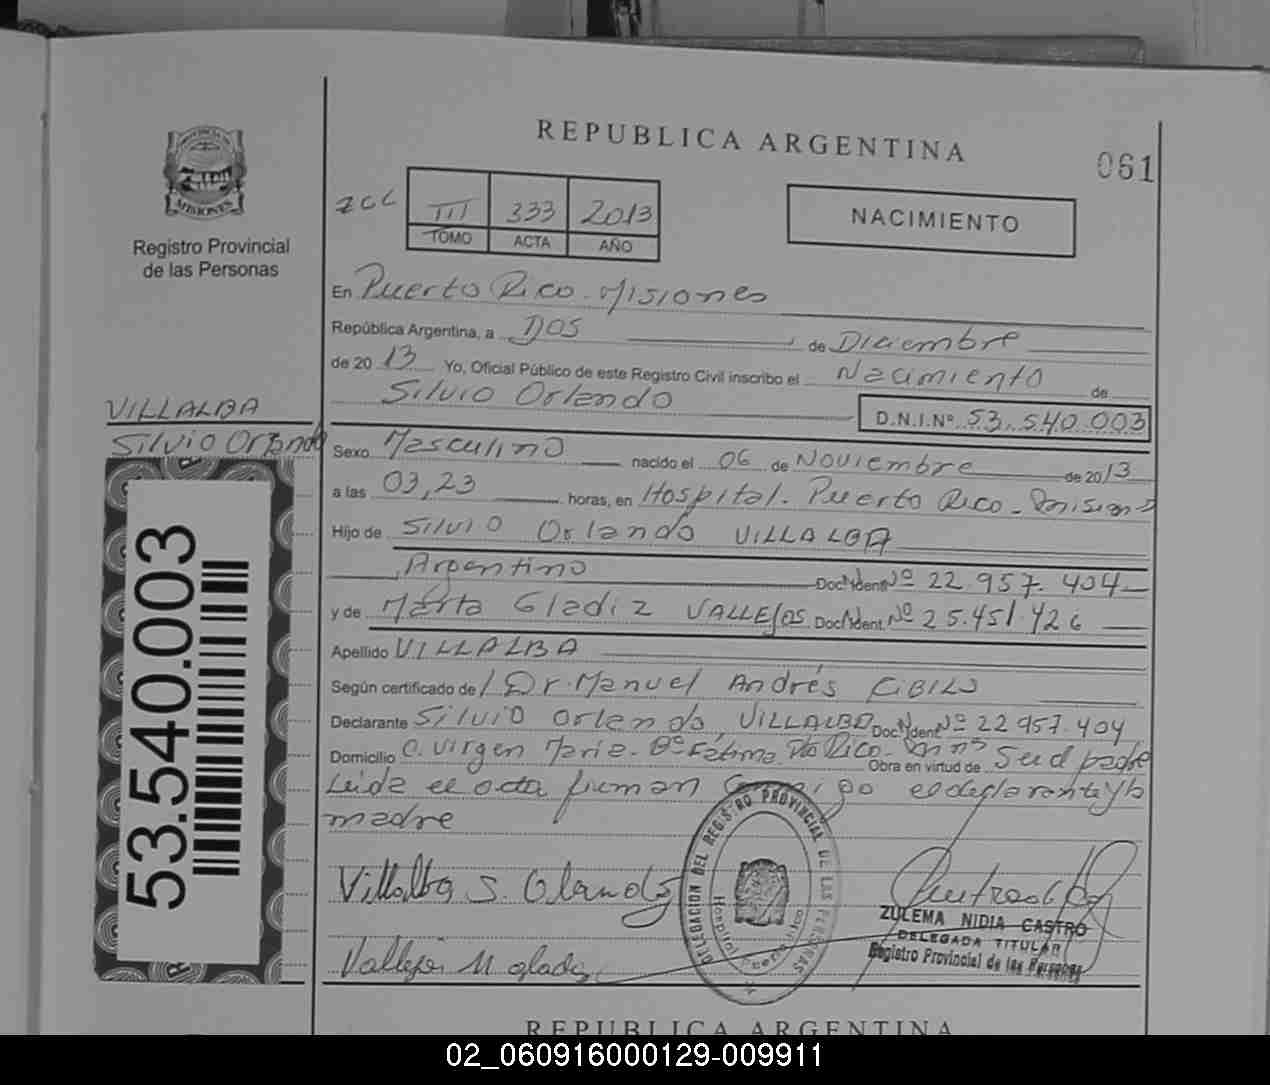 REPUBLICA ARGENTINA
061
PROVINCIA DE
MISIONES
Registro Provincial
de las Personas
III 333 2013
TOMO ACTA AÑO
NACIMIENTO
En Puerto Rico - Misiones
República Argentina, a DOS de Diciembre
de 2013 Yo, Oficial Público de este Registro Civil inscribo el Nacimiento de
Silvio Orlando
D.N.I.Nº 53.540.003
VILLALBA
Silvio Orlando
Sexo Masculino nacido el 06 de Noviembre de 2013
a las 03,23 horas, en Hospital. Puerto Rico - Misiones
Hijo de Silvio Orlando VILLALBA
Argentino Doc. Ident. Nº 22.957.404
y de Marta Gladiz VALLEJOS Doc. Ident. Nº 25.451.426
Apellido VILLALBA
Según certificado de Dr. Manuel Andrés CIBILS
Declarante Silvio Orlando VILLALBA Doc. Ident. Nº 22.957.404
Domicilio C. Virgen Maria - Bº Fatima Pto Rico - Mnes Obra en virtud de Ser el padre
Leida el acta firman conmigo el declarante y la
madre
53.540.003
Villalba S. Orlando
DELEGACION DEL REGISTRO PROVINCIAL DE LAS PERSONAS
Hospital Puerto Rico
ZULEMA NIDIA CASTRO
DELEGADA TITULAR
Registro Provincial de las Personas
REPUBLICA ARGENTINA
02_060916000129-009911